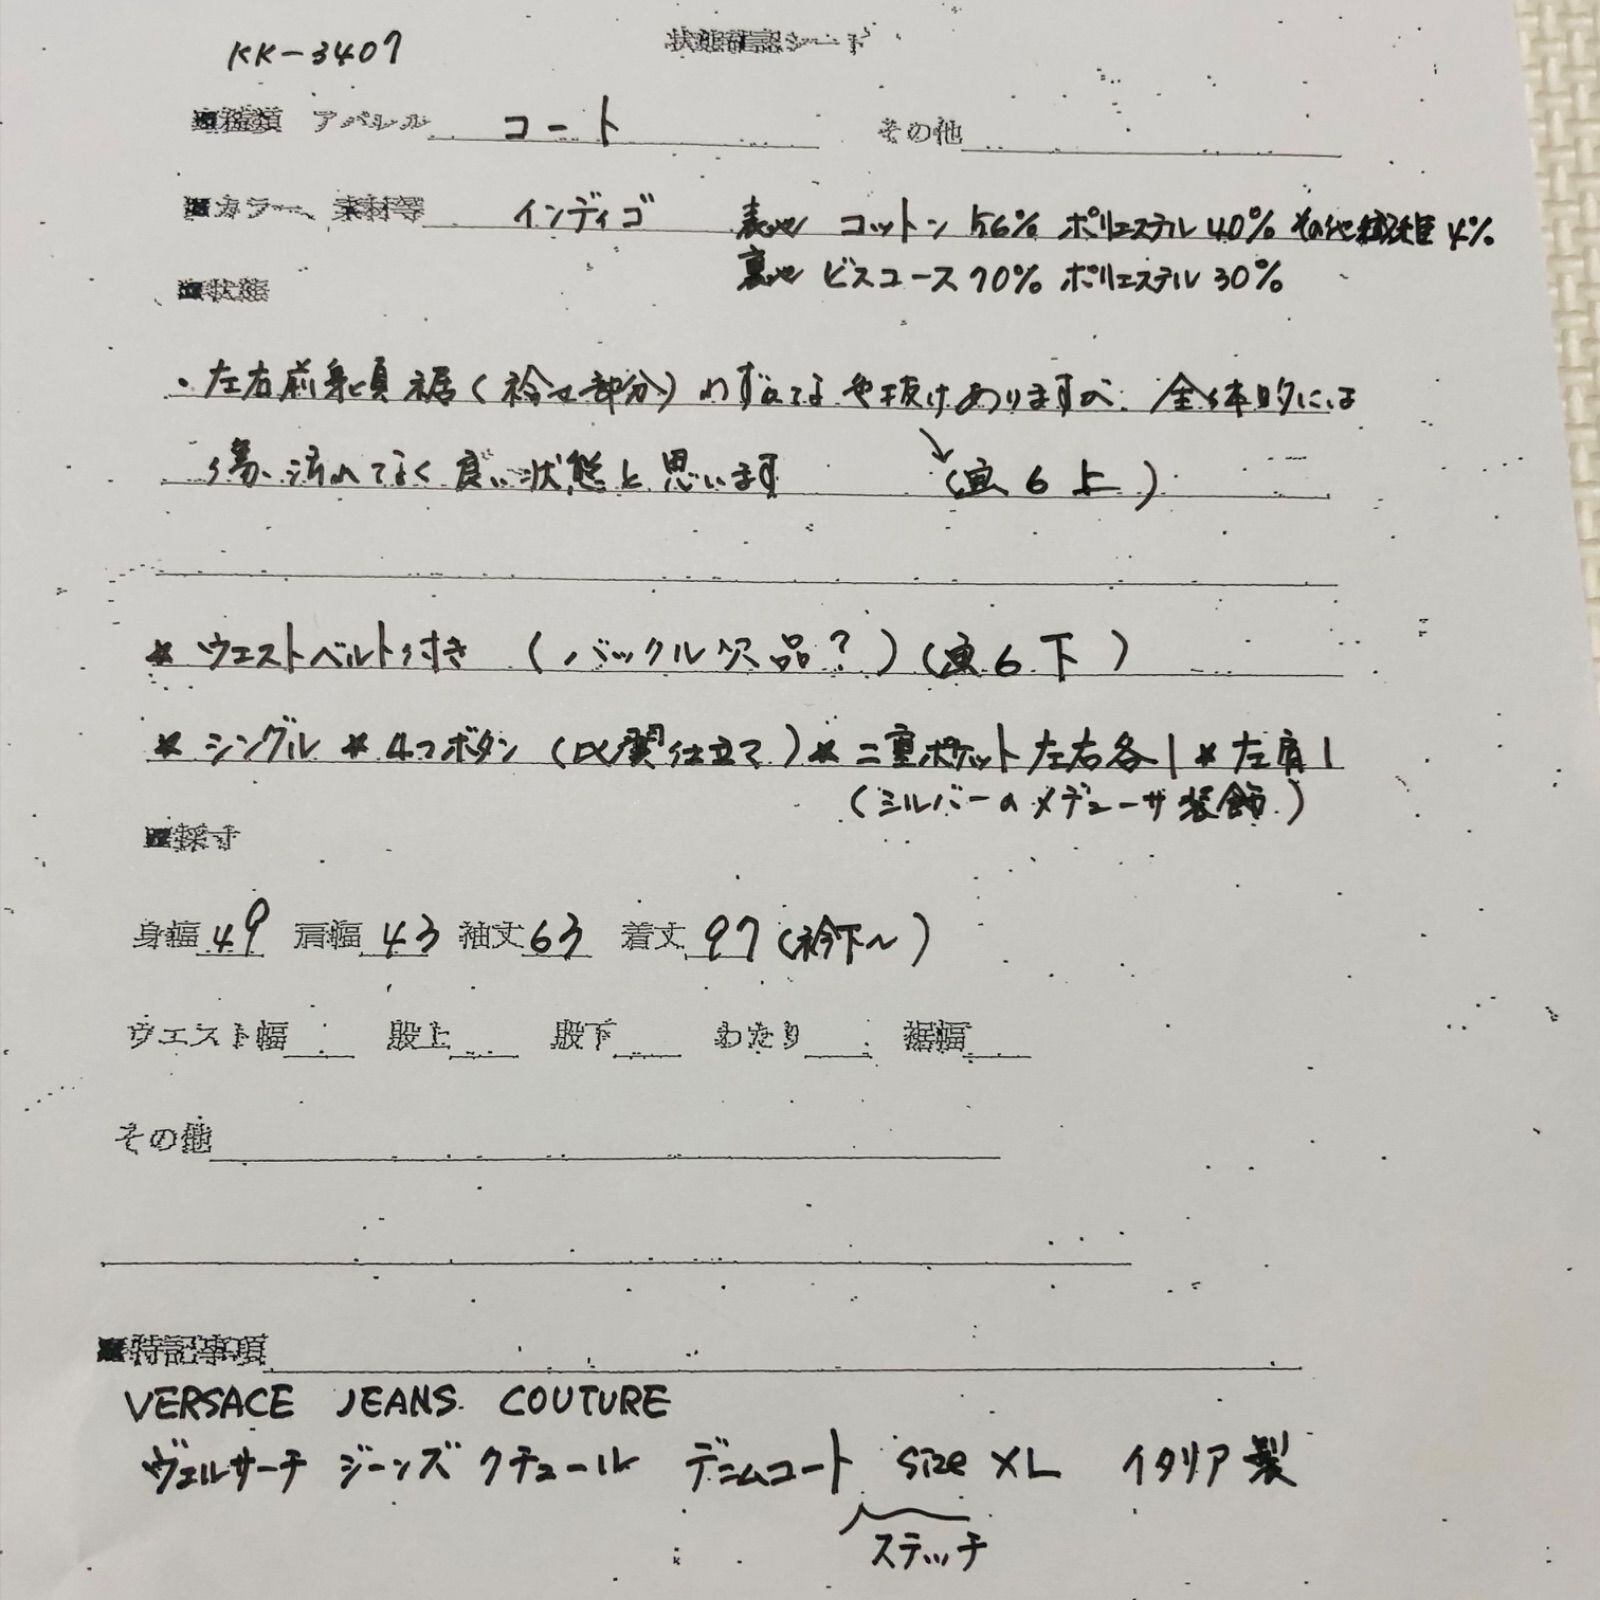 KK-3407 状態確認シート
■種類 アパレル コート その他
■カラー、素材等 インディゴ 表地 コットン 56% ポリエステル 40% その他繊維 4%
裏地 ビスコース 70% ポリエステル 30%
■状態
・左右前身頃裾(袷せ部分)わずかな色抜けありますが、全体的には
傷、汚れてなく良い状態と思います ↘(画6上)
* ウエストベルト付き (バックル欠品?)(画6下)
* シングル * 4つボタン (比翼仕立て) * 二重ポケット左右各1 * 左肩1
(シルバーのメデューサ装飾)
■採寸
身幅 49 肩幅 43 袖丈 63 着丈 97 (衿下~)
ウエスト幅 股上 股下 わたり 裾幅
その他
■特記事項
VERSACE JEANS COUTURE
ヴェルサーチ ジーンズ クチュール デニムコート size XL イタリア製
ステッチ